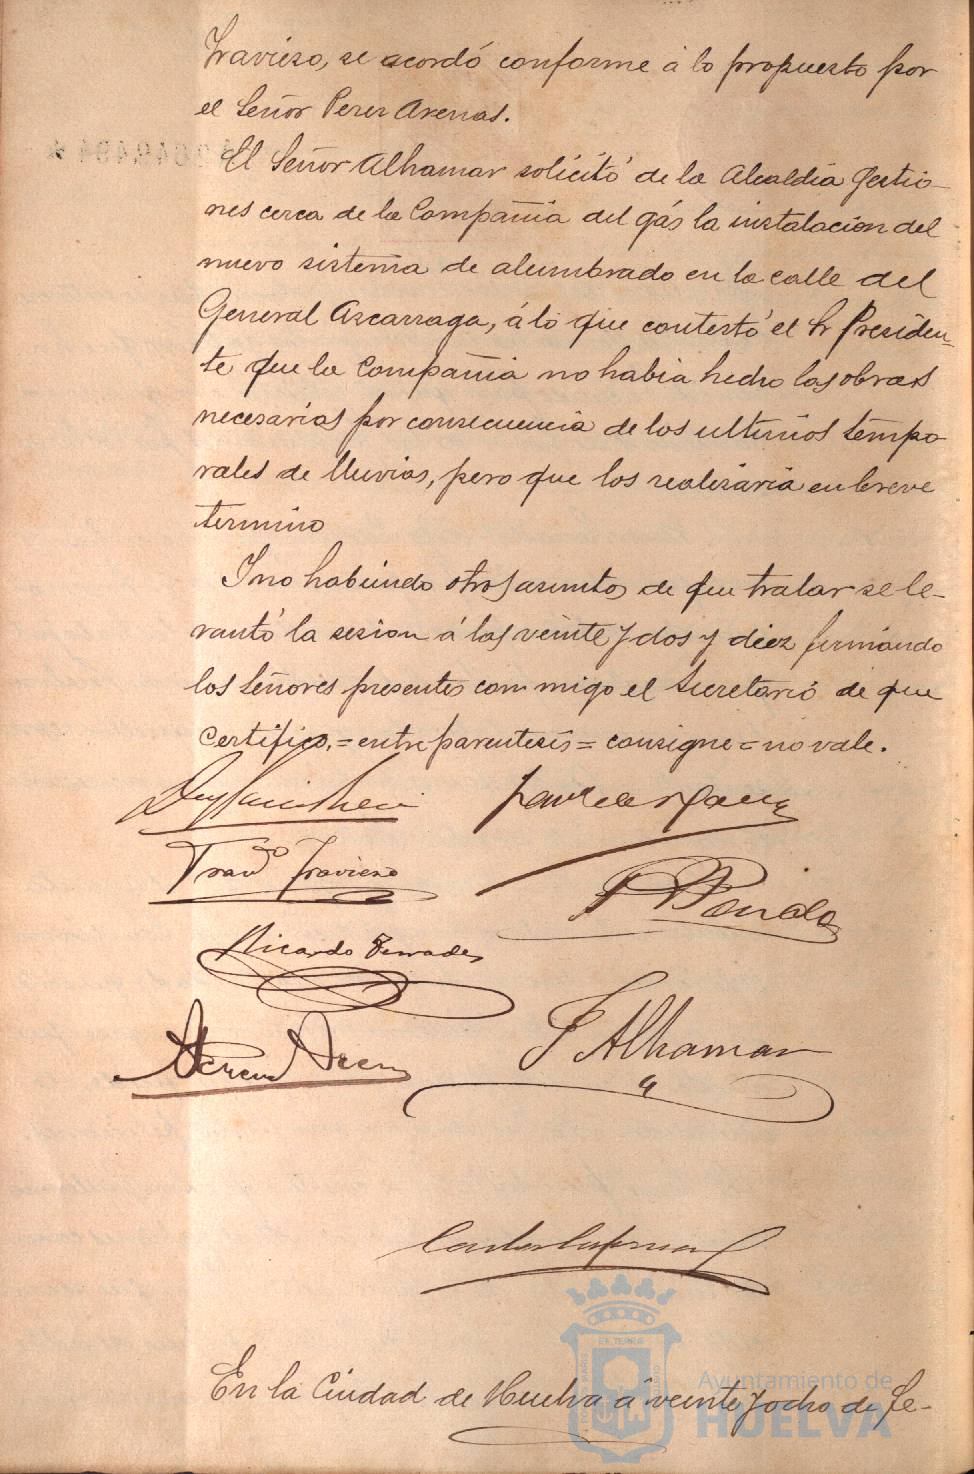 Travieso, se acordó conforme á lo propuesto por
el Señor Perez Arenas.
El Señor Alhamar solicitó de la Alcaldia gestio-
nes cerca de la Compañia del gás la instalacion del
nuevo sistema de alumbrado en la calle del
General Azcarraga, á lo que contestó el Sr Presiden-
te que la Compañia no habia hecho las obras
necesarias por consecuencia de los ultimos tempo-
rales de lluvias, pero que los realizaria en breve
termino
Y no habiendo otros asuntos de que tratar se le-
vantó la sesion á las veinte y dos y diez firmando
los Señores presentes conmigo el Secretario de que
certifico.=entre parentesis=consigne=no vale.
Franco Travieso
Ricardo Terrades
F Alhamar
Perez Aren
En la Ciudad de Huelva á veinte y ocho de Fe-
Ayuntamiento de
HUELVA